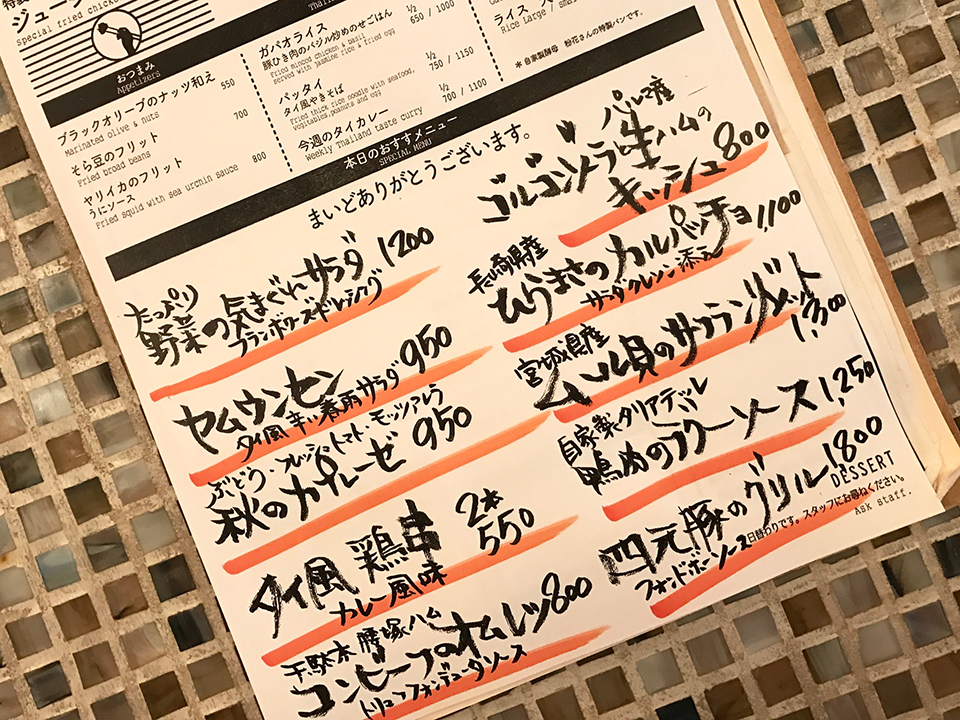 Special fried chicken
おつまみ
Appetizers
ブラックオリーブのナッツ和え 550
Marinated olive & nuts
そら豆のフリット 700
Fried broad beans
ヤリイカのフリット 800
うにソース
Fried squid with sea urchin sauce
ガパオライス 1/2 650 / 1000
豚ひき肉のバジル炒めのせごはん
Fried minced chicken & basil
served with jasmine rice & fried egg
パッタイ 1/2 750 / 1150
タイ風やきそば
Fried thick rice noodle with seafood,
vegitables,peanuts and egg
今週のタイカレー 1/2 700 / 1100
Weekly Thailand taste curry
ライス
Rice Large / small
＊自家製酵母 粉花さんの特製パンです。
本日のおすすメニュー
SPECIAL MENU
まいどありがとうございます。
たっぷり
野菜の気まぐれサラダ 1200
フランボワーズドレッシング
ヤムウンセン 950
タイ風 辛い春雨サラダ
ぶどう・フレッシュトマト・モッツァレラ
秋のカプレーゼ 950
タイ風 鶏串 2本 550
カレー風味
千駄木 腰塚ハム
コンビーフのオムレツ 800
トリュフフォンデュータソース
パルマ産
ゴルゴンゾーラ生ハムの
キッシュ 800
長崎県産
ひらまさのカルパッチョ 1,100
サラダクレソン添え
宮城県産
ムール貝のサフランリゾット 1,300
自家製タリアテッレ
鴨肉のラグーソース 1,250
四元豚のグリル 1,800
フォンドボーソース
DESSERT
日替わりです。スタッフにお尋ねください。
Ask staff.